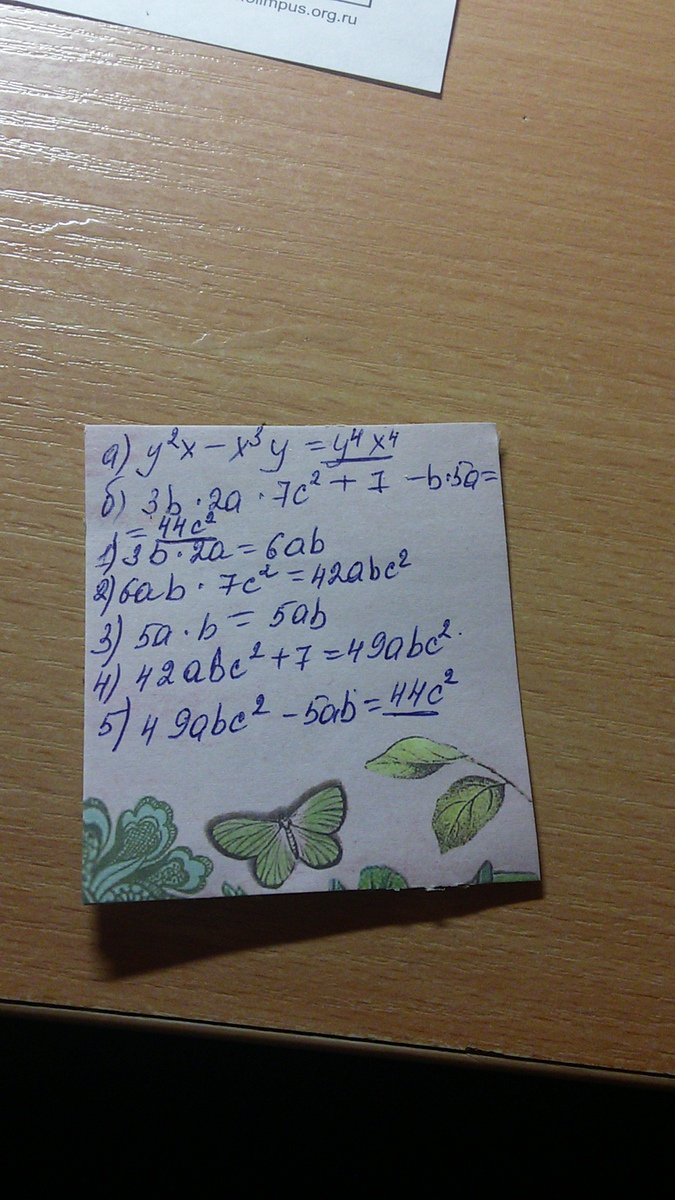 olimpus.org.ru
а) y²x - x³y = y⁴x⁴
б) 3b · 2a · 7c² + 7 - b·5a=
= 44c²
1) 3b · 2a = 6ab
2) 6ab · 7c² = 42abc²
3) 5a · b = 5ab
4) 42abc² + 7 = 49abc²
5) 49abc² - 5ab = 44c²